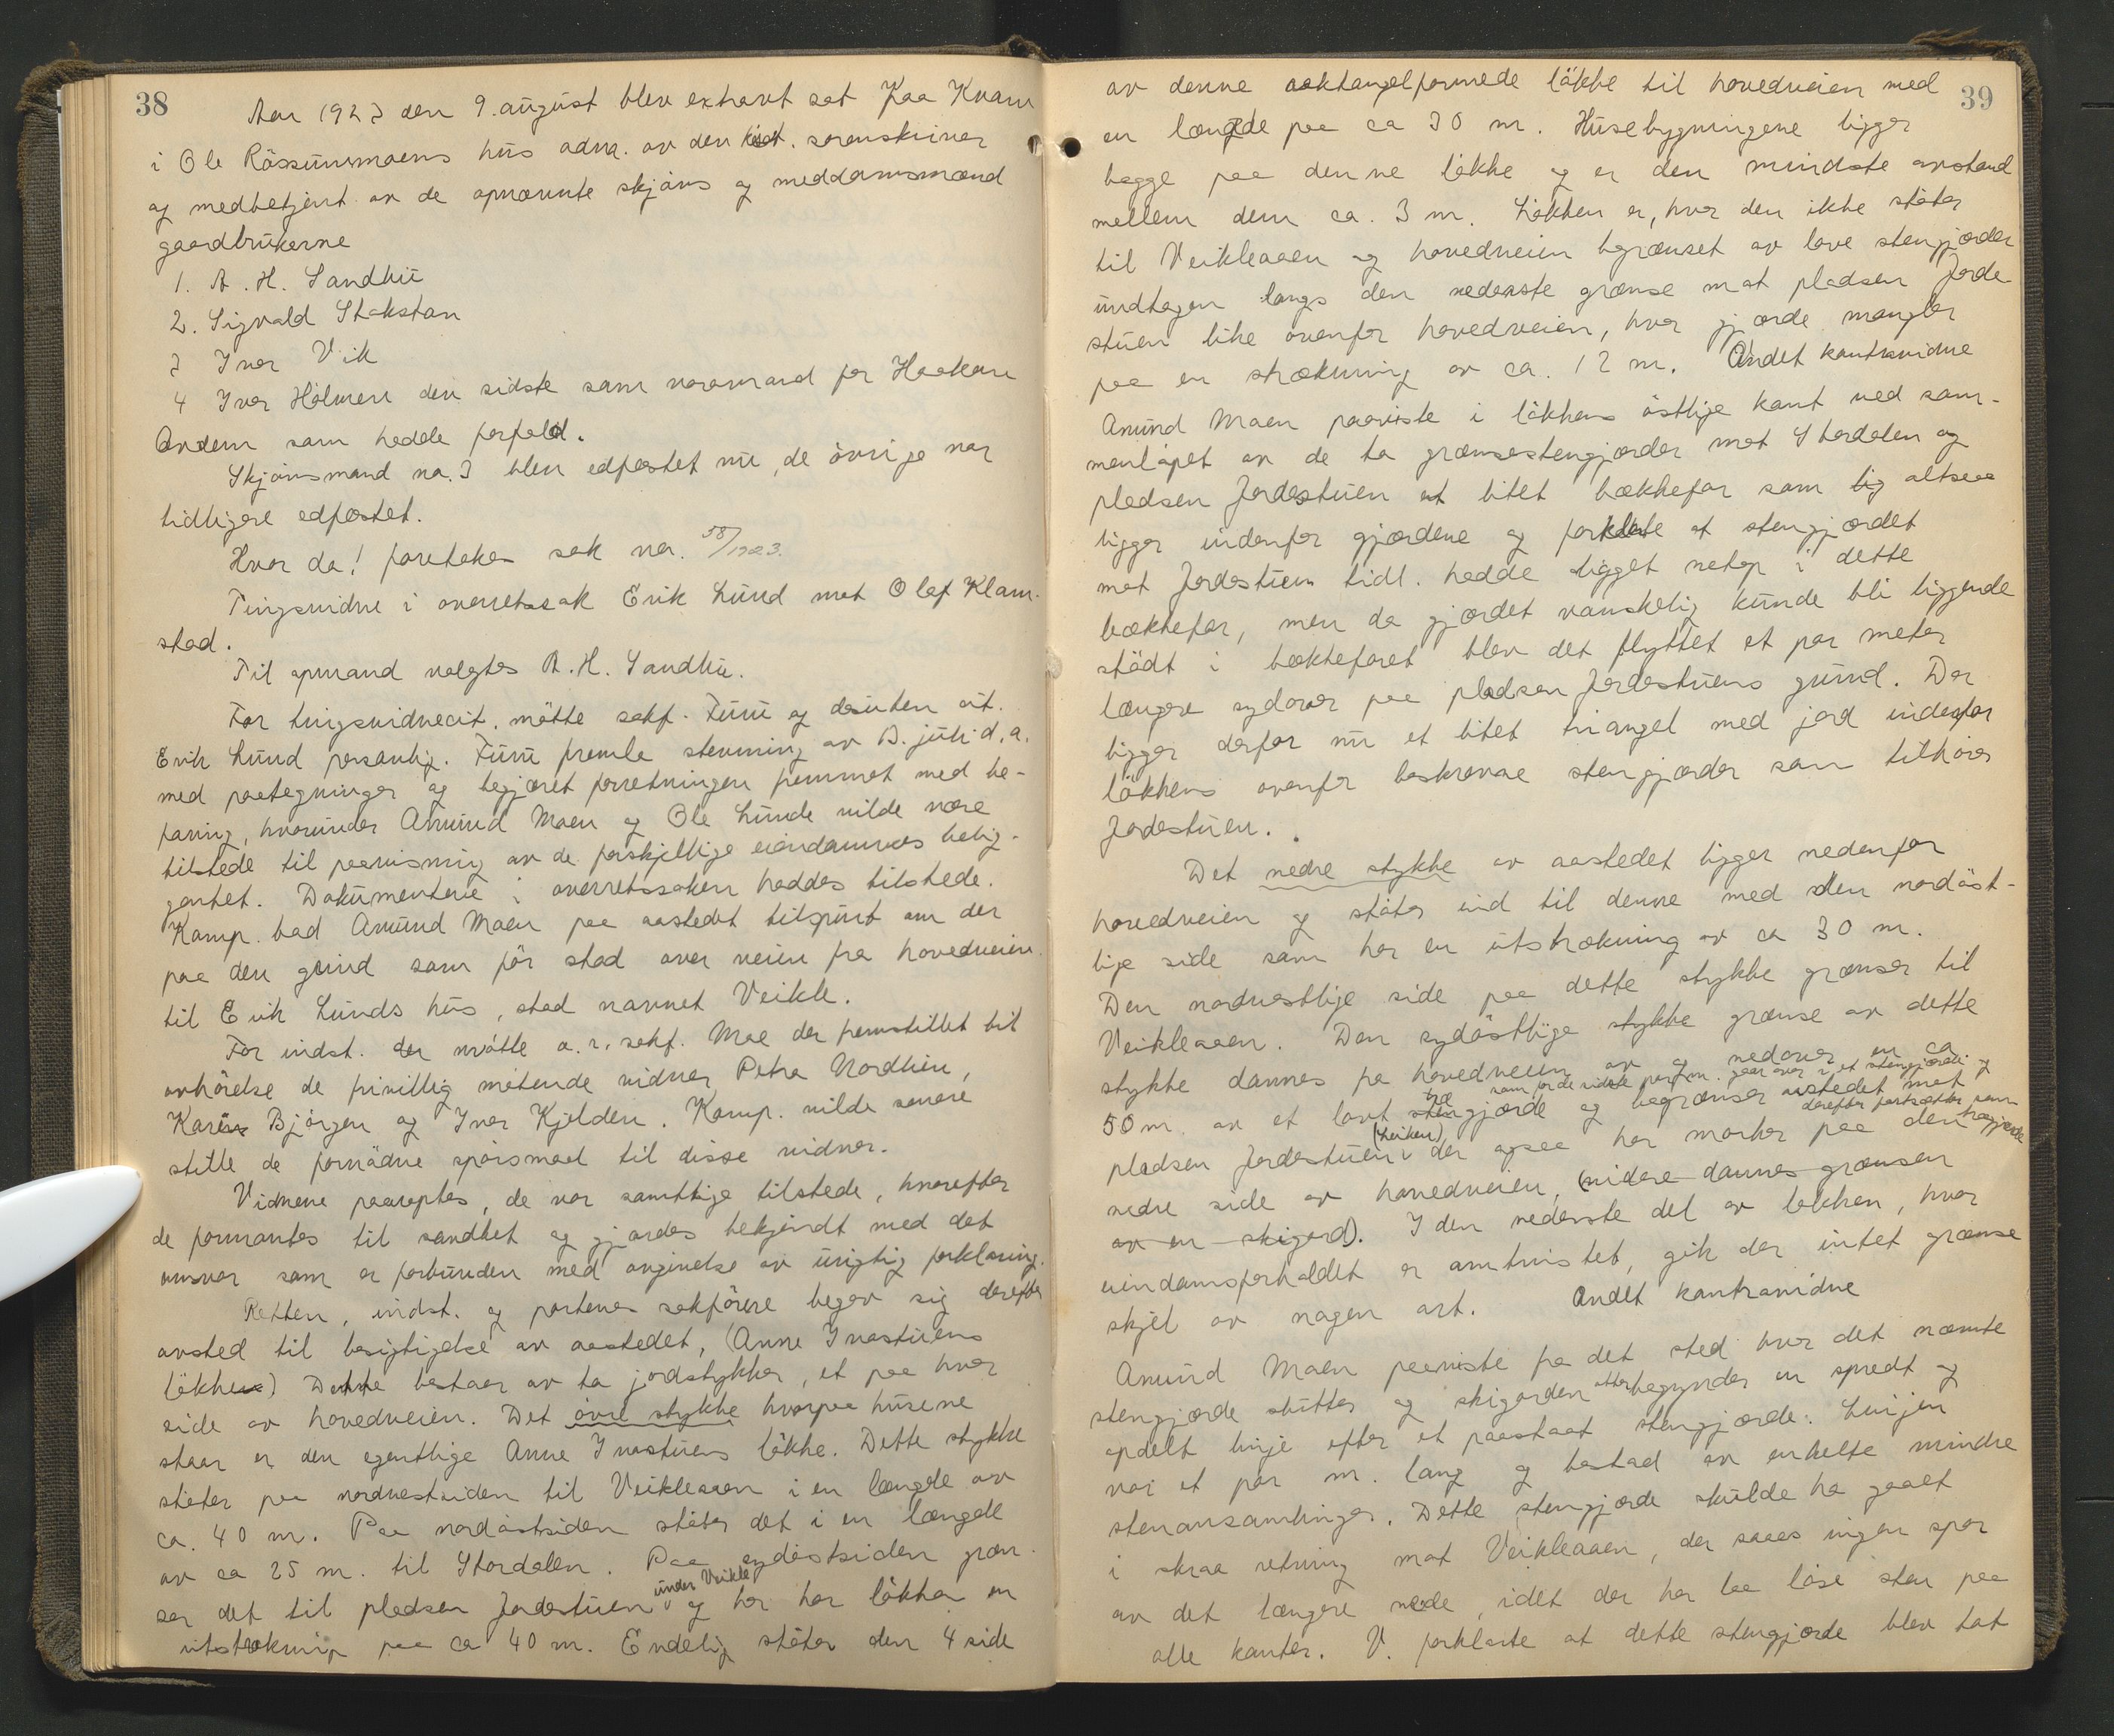 38
Aar 1923 den 9. august blev extraret sat paa Kvam
i Ole Råssummoens hus adm. av den const. sorenskriver
og medbetjent av de opnævnte skjöns og meddomsmænd
gaardbrukerne
1. A. H. Sandbu
2. Sigvald Stakston
3 Ivar Vik
4 Ivar Holmen den sidste som varamand for Haakon
Ordem som hadde forfald.
Skjönsmand no. 3 blev edfæstet nu, de övrige var
tidligere edfæstet.
Hvor da! foretokes sak nr. 58/1923.
Tingsvidne i overretssak Erik Lund mot Olaf Klom-
stad.
Til opmand valgtes A. H. Sandbu.
For tingsvidnecit. mötte sakf. Furu og desuten cit.
Erik Lund personlig. Furu fremla stevning av 13. juli d.a.
med paategninger og begjæret forretningen fremmet med be-
faring, hvorunder Amund Moen og Ole Lunde vilde være
tilstede til paavisning av de forskjellige eiendommes belig-
genhet. Dokumentene i overretssaken haddes tilstede.
Komp. bad Amund Moen paa aastedet tilspurt om der
paa den grind som för stod over veien fra hovedveien
til Erik Lunds hus, stod navnet Veikle.
For indst. der mötte o.r.sakf. Moe der fremstillet til
avhörelse de frivillig mötende vidner Petra Nordlien,
Karin Bjørgen og Ivar Kjelden. Komp. vilde senere
stille de fornödne spörsmaal til disse vidner.
Vidnene paaroptes, de var samtlige tilstede, hvorefter
de formantes til sandhet og gjordes bekjendt med det
ansvar som er forbunden med avgivelse av urigtig forklaring.
Retten, indst. og partenes sakförere begav sig derefter
avsted til besigtigelse av aastedet, (Anne Ivastuens
lökke) Dette bestaar av to jordstykker, et paa hver
side av hovedveien. Det övre stykke hvorpaa husene
staar er den egentlige Anne Ivastuens lökke. Dette stykke
stöter paa nordvestsiden til Veikleaaen i en længde av
ca. 40 m. Paa nordöstsiden stöter det i en længde
av ca 25 m. til Stordalen. Paa sydöstsiden græn-
ser det til pladsen Jordestuen under Veikle og her har lökken en
utstrækning paa ca 40 m. Endelig stöter den 4 side
39
av denne rektangelformede lökke til hovedveien med
en længde paa ca 30 m. Husebygningene ligger
begge paa denne lökke og er den mindste avstand
mellem dem ca. 3 m. Lökken er, hvor den ikke stöter
til Veikleaaen og hovedveien begrænset av lave stengjærder
undtagen langs den nederste grænse mot pladsen Jorde-
stuen like ovenfor hovedveien, hvor gjærde mangler
paa en strækning av ca. 12 m. Andet kontravidne
Amund Moen paaviste i lökkens östlige kant ved sam-
menlöpet av de to grænsestengjærder mot Stordalen og
pladsen Jordestuen et litet bækkefar som lig altsaa
ligger indenfor gjærdene og forklarte at stengjærdet
mot Jordestuen tidl. hadde ligget netop i dette
bækkefar, men da gjærdet vanskelig kunde bli liggende
stödt i bækkefaret blev det flyttet et par meter
længere sydover paa pladsen Jordestuens grund. Der
ligger derfor nu et litet triangel med jord indenfor
lökkens ovenfor beskrevne stengjærder som tilhörer
Jordestuen.
Det nedre stykke av aastedet ligger nedenfor
hovedveien og stöter ind til denne med den nordöst-
lige side som har en utstrækning av ca 30 m.
Den nordvestlige side paa dette stykke grænser til
Veikleaaen. Den sydöstlige stykke grænse av dette
stykke dannes fra hovedveien av og nedover en ca
som for de sidste par m. gaar over i et stengjærde og
50 m. av et lavt stengjærde og begrænser aastedet mot
derefter fortsætter som trægjærde
pladsen Jordestuen (Veikle) der ogsaa har marker paa den
nedre side av hovedveien, (videre dannes grænsen
av en skigard). I den nederste del av løkken, hvor
eiendomsforholdet er omtvistet, gik der intet grænse
skjel av nogen art. Andet kontravidne
Amund Moen paaviste fra det sted hvor det nævnte
stengjærde slutter og skigarden atter begynder en spredt og
opdelt linje efter et paastaat stengjærde. Linjen
var et par m. lang og bestod av enkelte mindre
stenansamlinger. Dette stengjærde skulde ha gaaet
i skraa retning mot Veikleaaen, der saaes ingen spor
av det længere nede, idet der her laa löse sten paa
alle kanter. V. forklarte at dette stengjærde blev tat